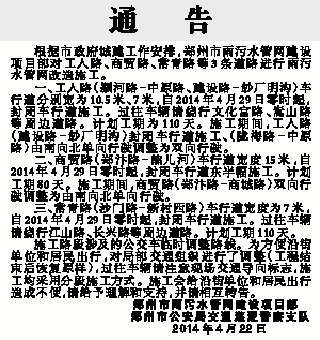 通 告
根据市政府城建工作安排,郑州市雨污水管网建设
项目部对工人路、商贸路、常青路等3条道路进行雨污
水管网改造施工。
一、工人路(颍河路-中原路、建设路-纱厂明沟)车
行道分别宽为10.5米、7米,自2014年4月29日零时起,
封闭车行道施工。过往车辆请绕行文化宫路、嵩山路
等周边道路。计划工期为110天。施工期间,工人路
(建设路-纱厂明沟)封闭车行道施工、(陇海路-中原
路)由南向北单向行驶调整为双向行驶。
二、商贸路(郑汴路-熊儿河)车行道宽度15米,自
2014年4月29日零时起,封闭车行道东半幅施工。计划工
期80天。施工期间,商贸路(郑汴路-商城路)双向行
驶调整为由南向北单向行驶。
三、常青路(沙门路-新村西路)车行道宽度为7米,
自2014年4月29日零时起,封闭车行道施工。过往车辆
请绕行江山路、长兴路等周边道路。计划工期110天。
施工路段涉及的公交车临时调整路线。为方便沿街
单位和居民出行,对局部交通组织进行了调整(工程结
束后恢复原样),过往车辆请注意现场交通导向标志,施
工均采用分段施工方式。施工会给沿街单位和居民出行
造成不便,请给予理解和支持,并请相互转告。
郑州市雨污水管网建设项目部
郑州市公安局交通巡逻警察支队
2014年4月22日